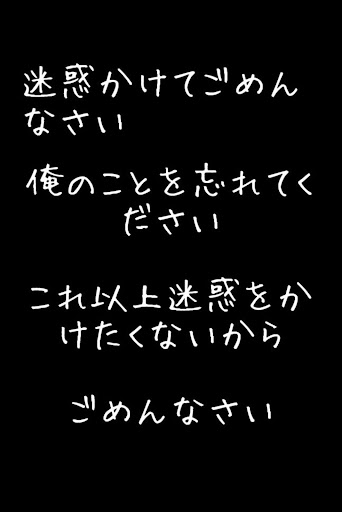 迷惑かけてごめん
なさい
俺のことを忘れてく
ださい
これ以上迷惑をか
けたくないから
ごめんなさい